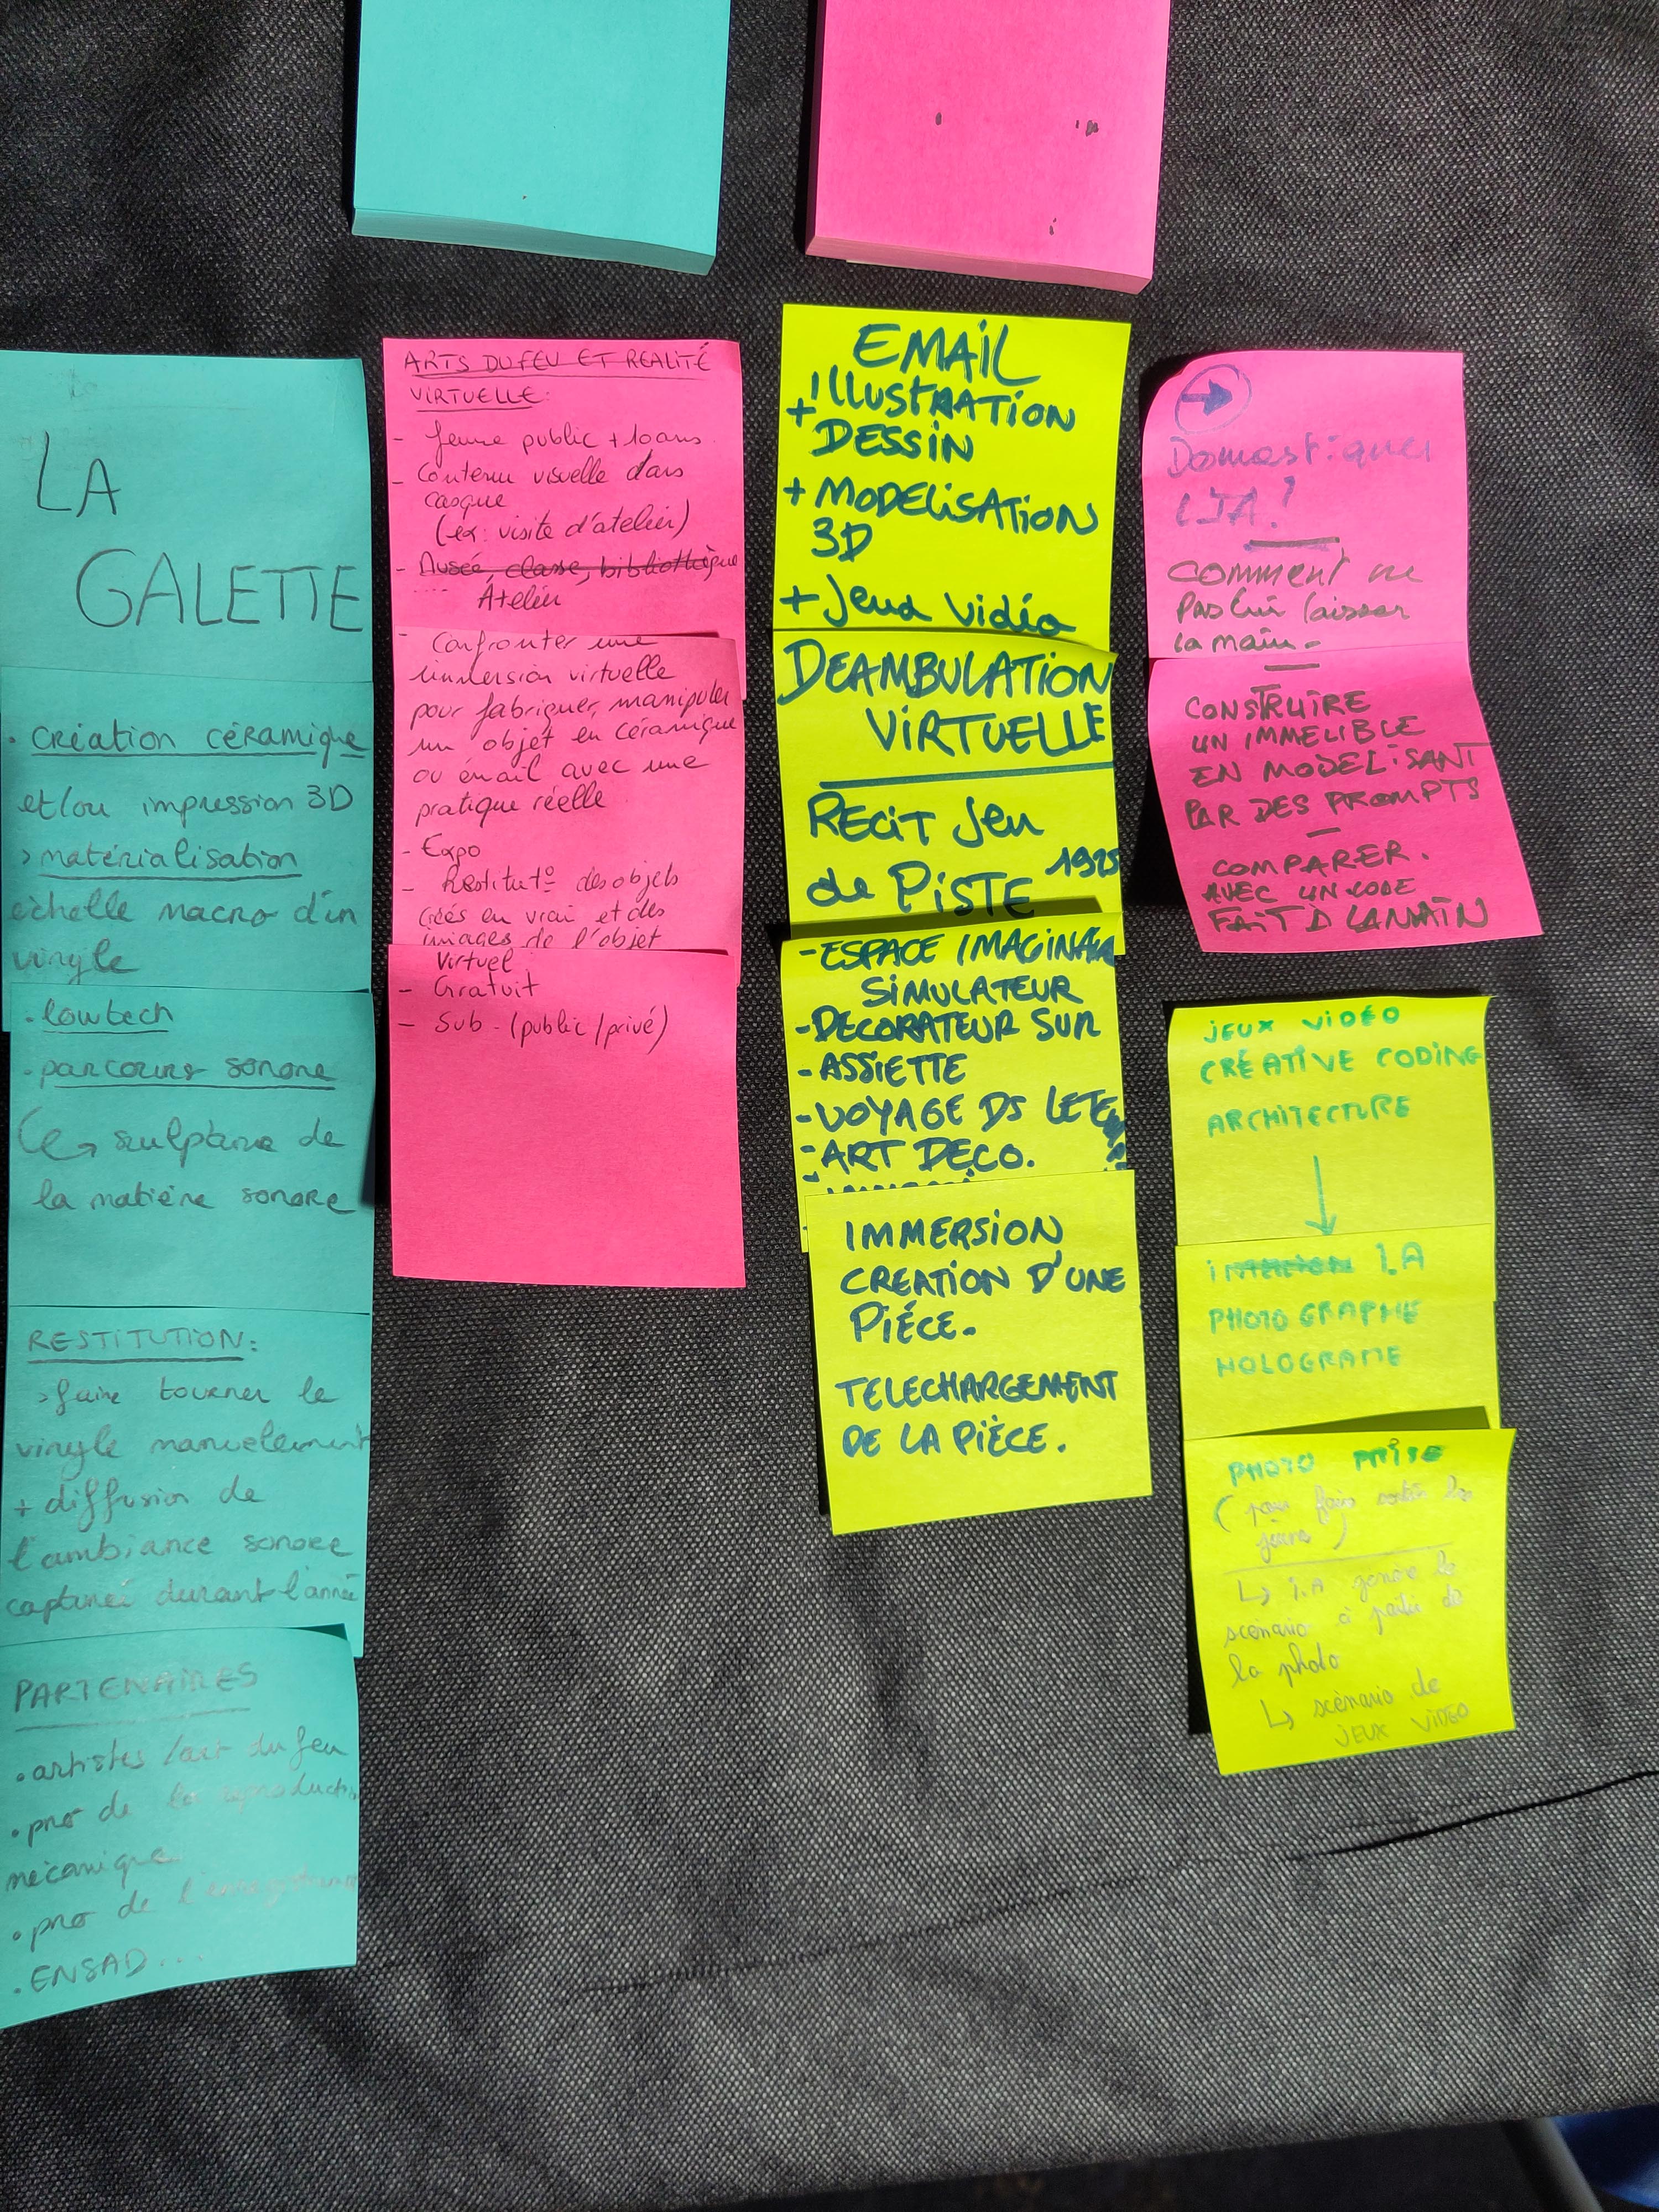 LA
GALETTE
. création céramique
et/ou impression 3D
> matérialisation
echelle macro d'un
vinyle
. lowtech
. parcours sonore
sculpture de
la matière sonore
RESTITUTION:
> faire tourner le
vinyle manuelement
+ diffusion de
l'ambiance sonore
capturée durant l'année
PARTENAIRES
. artistes / art du feu
. pro de la reproduction
mécanique
. pro de
. ENSAD...
ARTS DU FEU ET REALITÉ
VIRTUELLE:
- Jeune public + 10 ans.
- Contenu visuelle dans
casque
(ex: visite d'atelier)
- Musée, classe, bibliothèque
.... Atelier
- Confronter une
immersion virtuelle
pour fabriquer, manipuler
un objet en céramique
ou émail avec une
pratique réelle
- Expo
- Restitut° des objets
créés en vrai et des
images de l'objet
virtuel
- Gratuit
- Sub. (public/privé)
EMAIL
+ ILLUSTRATION
DESSIN
+ MODELISATION
3D
+ Jeux vidéo
DEAMBULATION
VIRTUELLE
RECIT Jeu
de PISTE 1925
- ESPACE IMAGINAIR
SIMULATEUR
- DECORATEUR SUR
- ASSIETTE
- VOYAGE DS LE TEMPS
- ART DECO.
IMMERSION
CREATION D'UNE
PIÉCE.
TELECHARGEMENT
DE LA PIÈCE.
→
Domestiquer
L'IA!
COMMENT ne
PAS lui laisser
la main -
CONSTRUIRE
UN IMMEUBLE
EN MODELISANT
PAR DES PROMPTS
—
COMPARER.
AVEC UN CODE
FAIT À LA MAIN
JEUX VIDÉO
CRÉATIVE CODING
ARCHITECTURE
↓
I.A
PHOTOGRAPHIE
HOLOGRAME
PHOTO PRISE
(pour faire sortir les
jeunes)
↳ I.A génère le
scénario à partir de
la photo
↳ scénario de
JEUX VIDEO